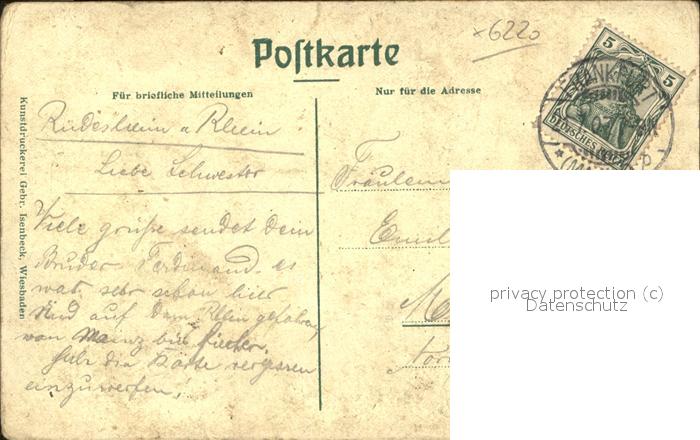 ×6220
Postkarte
Für briefliche Mitteilungen
Nur für die Adresse
Kunstdruckerei Gebr. Isenbeck, Wiesbaden
5 5
DEUTSCHES REICH
FRANKFURT
Rüdesheim a Rhein
Liebe Schwester
Viele grüße sendet dein
Bruder Ferdinand. es
war sehr schön hier
sind auf dem Rhein gefahren
von Mainz bis hierher.
habe die Karte vergessen
einzuwerfen!
Fräulein
Emil
privacy protection (c)
Datenschutz